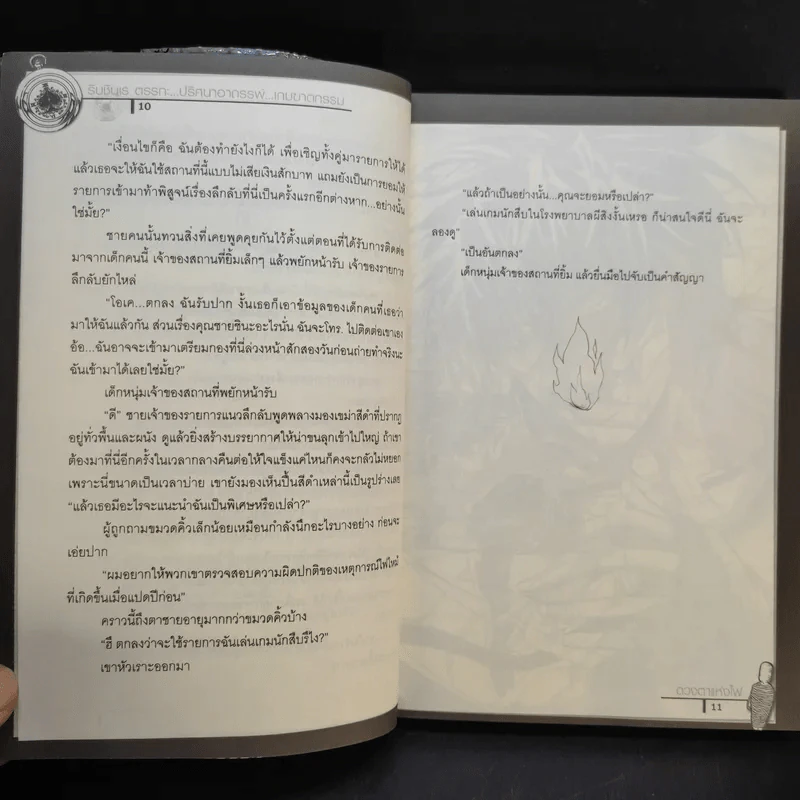 รินชินแร ตรรกะ...ปริศนาอาถรรพ์...เกมฆาตกรรม
10
“เงื่อนไขก็คือ ฉันต้องทำยังไงก็ได้ เพื่อเชิญทั้งคู่มารายการให้ได้
แล้วเธอจะให้ฉันใช้สถานที่นี้แบบไม่เสียเงินสักบาท แถมยังเป็นการยอมให้
รายการเข้ามาท้าพิสูจน์เรื่องลึกลับที่นี่เป็นครั้งแรกอีกต่างหาก...อย่างนั้น
ใช่มั้ย?”
ชายคนนั้นทวนสิ่งที่เคยพูดคุยกันไว้ตั้งแต่ตอนที่ได้รับการติดต่อ
มาจากเด็กคนนี้ เจ้าของสถานที่ยิ้มเล็กๆ แล้วพยักหน้ารับ เจ้าของรายการ
ลึกลับยักไหล่
“โอเค...ตกลง ฉันรับปาก งั้นเธอก็เอาข้อมูลของเด็กคนที่เธอว่า
มาให้ฉันแล้วกัน ส่วนเรื่องคุณชายชินะอะไรนั่น ฉันจะโทร. ไปติดต่อเขาเอง
อ้อ...ฉันอาจจะเข้ามาเตรียมกองที่นี่ล่วงหน้าสักสองวันก่อนถ่ายทำจริงนะ
ฉันเข้ามาได้เลยใช่มั้ย?”
เด็กหนุ่มเจ้าของสถานที่พยักหน้ารับ
“ดี” ชายเจ้าของรายการแนวลึกลับพูดพลางมองเขม่าสีดำที่ปรากฏ
อยู่ทั่วพื้นและผนัง ดูแล้วยิ่งสร้างบรรยากาศให้น่าขนลุกเข้าไปใหญ่ ถ้าเขา
ต้องมาที่นี่อีกครั้งในเวลากลางคืนต่อให้ใจแข็งแค่ไหนก็คงจะกลัวไม่หยอก
เพราะนี่ขนาดเป็นเวลาบ่าย เขายังมองเห็นปื้นสีดำเหล่านี้เป็นรูปร่างเลย
“แล้วเธอมีอะไรจะแนะนำฉันเป็นพิเศษหรือเปล่า?”
ผู้ถูกถามขมวดคิ้วเล็กน้อยเหมือนกำลังนึกอะไรบางอย่าง ก่อนจะ
เอ่ยปาก
“ผมอยากให้พวกเขาตรวจสอบความผิดปกติของเหตุการณ์ไฟไหม้
ที่เกิดขึ้นเมื่อแปดปีก่อน”
คราวนี้ถึงตาชายอายุมากกว่าขมวดคิ้วบ้าง
“ฮึ ตกลงว่าจะใช้รายการฉันเล่นเกมนักสืบรึไง?”
เขาหัวเราะออกมา
“แล้วถ้าเป็นอย่างนั้น...คุณจะยอมหรือเปล่า?”
“เล่นเกมนักสืบในโรงพยาบาลผีสิงงั้นเหรอ ก็น่าสนใจดีนี่ ฉันจะ
ลองดู”
“เป็นอันตกลง”
เด็กหนุ่มเจ้าของสถานที่ยิ้ม แล้วยื่นมือไปจับเป็นคำสัญญา
ดวงตาแห่งไฟ
11